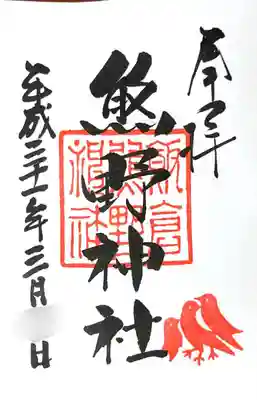 奉拝
飯倉
熊野
神社
熊野神社
平成三十一年三月 日